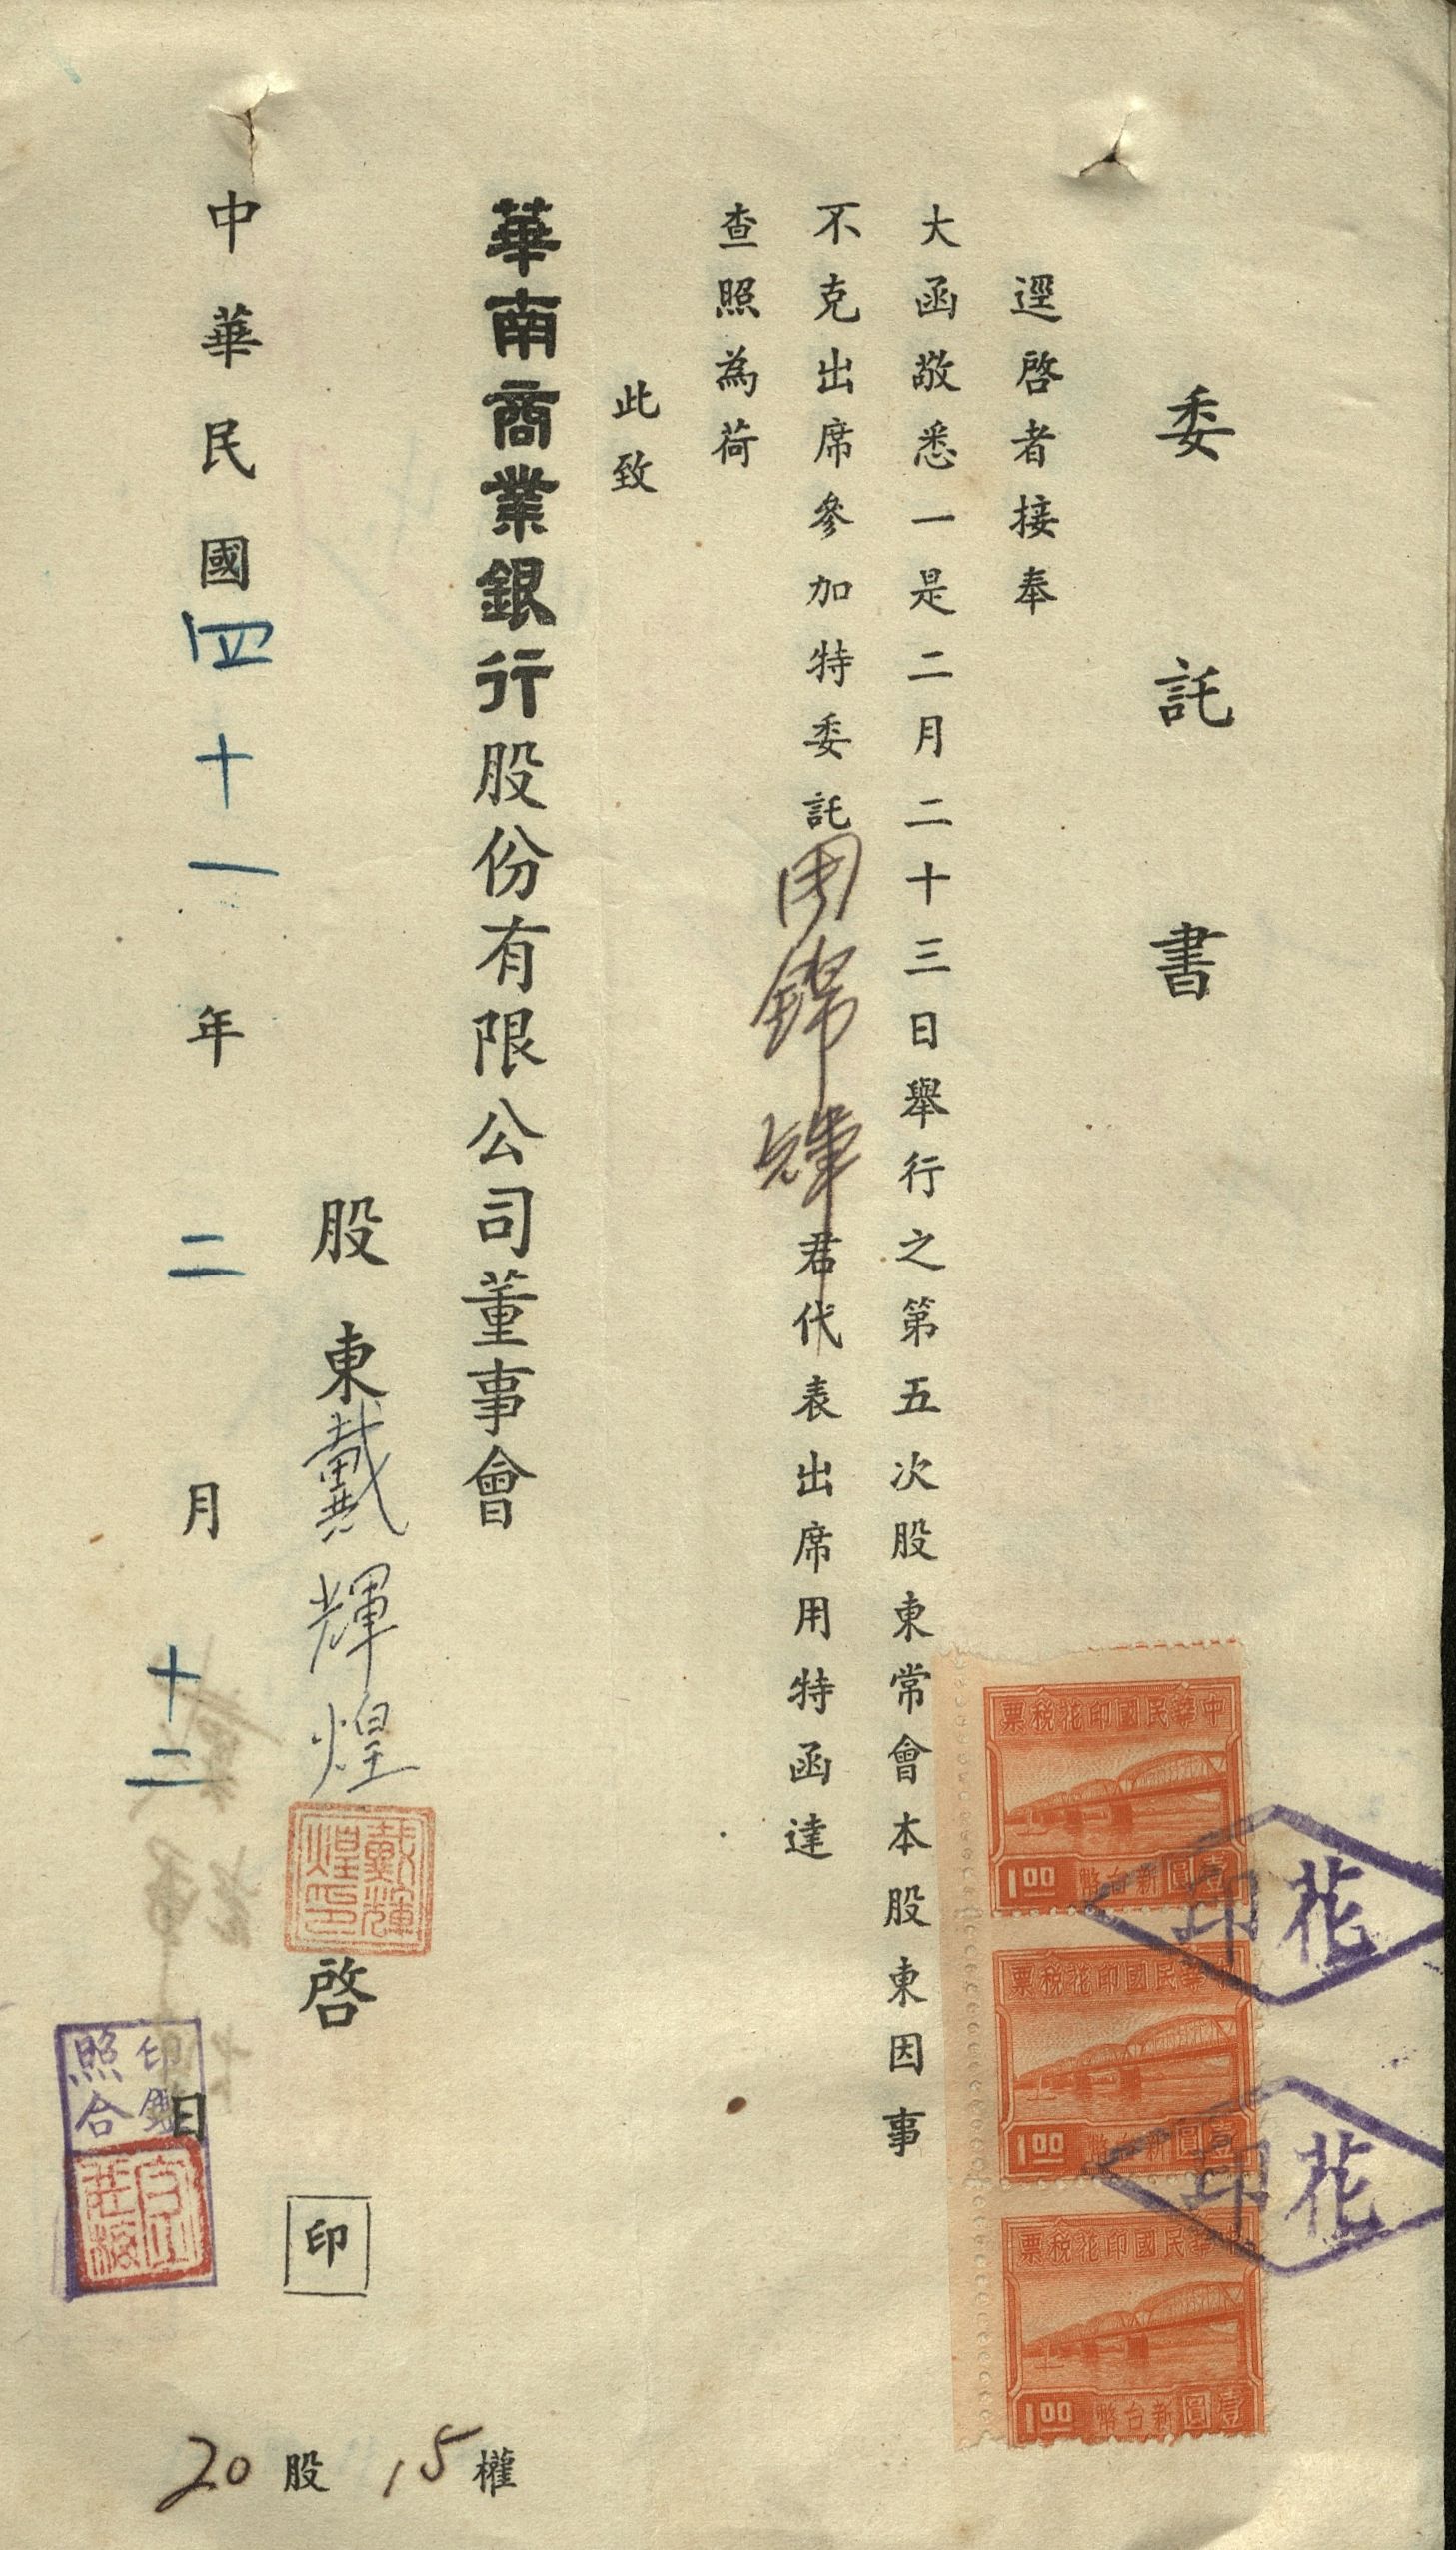 委託書
逕啓者接奉
大函敬悉一是二月二十三日舉行之第五次股東常會本股東因事
不克出席參加特委託周錦輝君代表出席用特函達
查照為荷
此致
華南商業銀行股份有限公司董事會
股東戴輝煌啓
戴輝煌印
印
中華民國四十一年二月十二日
印鑑照合
20股 15權
票稅花印國民華中
1.00 幣台新圓壹
票稅花印國民華中
1.00 幣台新圓壹
票稅花印國民華中
1.00 幣台新圓壹
印花
印花